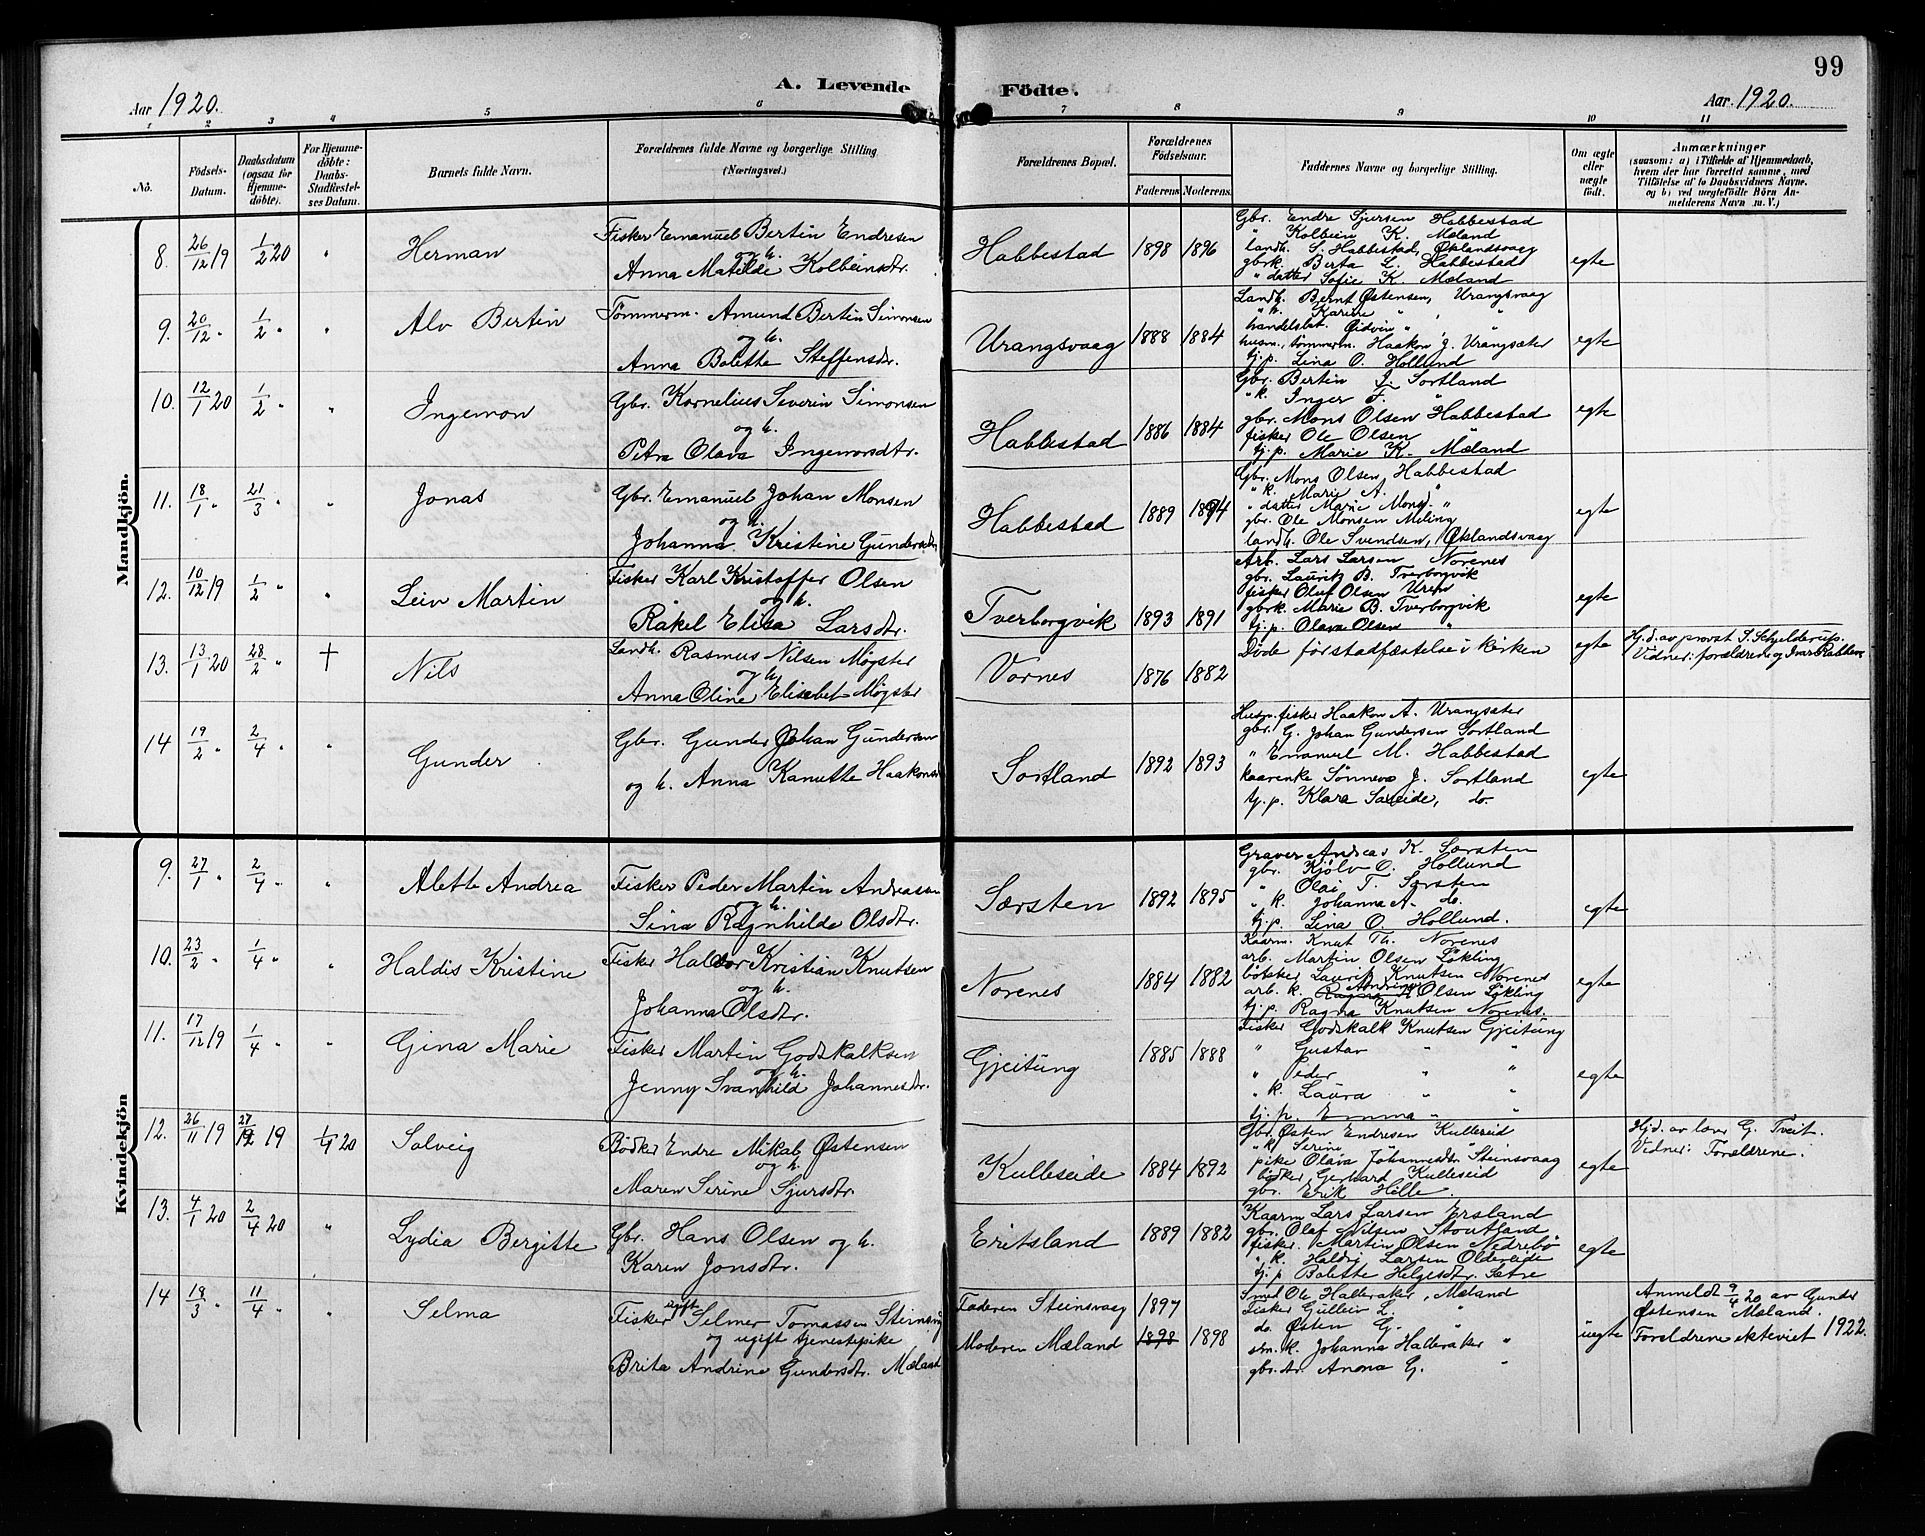 99
A. Levende Födte.
Aar 1920.
Aar. 1920.
1 2 3 4 5 6 7 8 9 10 11
No.
Födsels-Datum.
Daabsdatum (ogsaa for Hjemme-döbte).
For Hjemme-döbte: Daabs-Stadfæstelses Datum.
Barnets fulde Navn.
Forældrenes fulde Navne og borgerlige Stilling
(Næringsvei.)
Forældrenes Bopæl.
Forældrenes Födselsaar.
Faderens. Moderens.
Faddernes Navne og borgerlige Stilling.
Om ægte eller uægte födt.
Anmærkninger
(saasom: a) i Tilfælde af Hjemmedaab,
hvem der har forrettet samme, med
Tilföielse af to Daabsvidners Navne,
og b) ved uægtefödte Börn An-
melderens Navn m. V.)
Mandkjön.
8. 26/12 19 1/2 20 " Herman
Fisker Emanuel Bertin Endresen
og h.
Anna Matilde Kolbeinsdtr.
Habbestad 1898 1896
Gbr. Endre Sjursen Habbestad
" Kolbein K. Mæland
landh. S. Habbestad, Øklandsvaag
gbrk. Berta L. Habbestad
" datter Sofie K. Mæland
egte
9. 20/12 " 1/2 " " Alv Bertin
Tömmerm. Amund Bertin Simonsen
og h.
Anna Bolette Steffensdtr.
Urangsvaag 1888 1884
Landh. Bernt Østensen, Urangsvaag
" k. Karine " , "
handelsbet. Øidvin " , "
husm., tömmerm. Haakon J. Urangsæter
tj.p. Lina O. Hollund
egte
10. 12/1 20 1/2 " " Ingemon
Gbr. Kornelius Severin Simonsen
og h.
Petra Olava Ingemonsdtr.
Habbestad 1886 1884
Gbr. Bertin J. Sortland
" k. Inger F. "
gbr. Mons Olsen Habbestad
fisker Ole Olsen
tj.p. Marie K. Mæland
egte
11. 18/1 " 21/3 " " Jonas
Gbr. Emanuel Johan Monsen
og h.
Johanna Kristine Gundersdtr.
Habbestad 1889 1894
Gbr. Mons Olsen Habbestad
" k. Marie A. "
" datter Marie Monsd. "
gbr. Ole Monsen Meling
landh. Ole Svendsen, Øklandsvaag
egte
12. 10/12 19 1/2 " " Leiv Martin
Fisker Karl Kristoffer Olsen
og h.
Rakel Elisa Larsdtr.
Tverborgvik 1893 1891
Arb. Lars Larsen Norenes
gbr. Lauritz B. Tverborgvik
fisker Oluf Olsen Uren
gbrk. Marie B. Tverborgvik
tj.p. Olava Olsen "
egte
13. 13/1 20 28/2 " † Nils
Landh. Rasmus Nilsen Møgster
og h.
Anna Oline Elisabet Møgster
Vornes 1876 1882
Døde før stadfæstelse i kirken
egte
Hj.d. av provst S. Schjelderup.
Vidner: forældrene og Ivar Rabben
14 19/2 " 2/4 " " Gunder.
Gbr. Gunder Johan Gundersen
og h. Anna Kanutte Haakonsd
Sortland 1892 1893
Husm. fisker Haakon A. Urangsæter
gbr. G. Johan Gundersen Sortland
" Emanuel M. Habbestad
kaarenke Sønneva J. Sortland
tj.p. Klara Særeide, do.
egte
Kvindekjön
9. 27/1 " 2/4 " " Alette Andrea
Fisker Peder Martin Andreassen
og h.
Sina Ragnhilde Olsdtr.
Særsten 1892 1895
Graver Andreas K. Særsten
gbr. Kjölv O. Hollund
" Olai T. Særsten
" k. Johanna A. do.
tj.p. Lina O. Hollund.
egte
10. 23/2 " 1/4 " " Haldis Kristine
Fisker Haldor Kristian Knutsen
og h.
Johanna Olsdtr.
Norenes 1884 1882
Kaarm. Knut Th. Norenes
arb. Martin Olsen Løkling
bötsker Laurits Knutsen Norenes
arb. k. Andrine Olsen Løkling
tj.p. Ragna Knutsen Norenes.
egte
11. 17/12 19 1/4 " " Gina Marie
Fisker Martin Godskalksen
og h.
Jenny Svanhild Johannesdtr.
Gjeitung 1885 1888
Fisker Godskalk Knutsen Gjeitung
" Gustav " "
" Peder " "
" k. Laura " "
tj.p. Emma " "
egte
12. 26/11 19 27/12 19 1/4 20 Solveig
Bödker Endre Mikal Østensen
og h.
Maren Serine Sjursdtr.
Kulleseide 1884 1892
Gbr. Østen Endresen Kulleseid
" k. Serine "
pike Olava Johannesdtr. Steinsvaag
bödker Gerhard Kulleseid
gbr. Erik Hille.
egte
Hj.d. av lærer G. Tveit.
Vidner: Forældrene.
13. 4/1 20 2/4 20 " Lydia Bergitte
Gbr. Hans Olsen og h.
Karen Jonsdtr.
Eritsland 1889 1882
Kaarm Lars Larsen Ersland
gbr. Olaf Nilsen Stoutland
fisker. Martin Olsen Nedrebö
" k. Haldri Larsen Oldereide
tj.p. Bolette Helgesdtr. Sætre
egte
14 18/3 " 11/4 " " Selma
Fisker ugift Selmer Tomassen Steinsvåg
og ugift tjenestepike
Brita Andrine Gundersdtr. Mæland
Faderen Steinsvaag 1897
Moderen Mæland 1898 1898
Smed Ole Halleraker, Mæland
Fisker Gulleiv L. "
do. Østen G. "
sm. k. Johanna Halleraker "
gbr. dr. Anna G. "
uegte
Anmeldt 9/4 20 av Gunder
Østensen Mæland.
Forældrene ekteviet 1922.